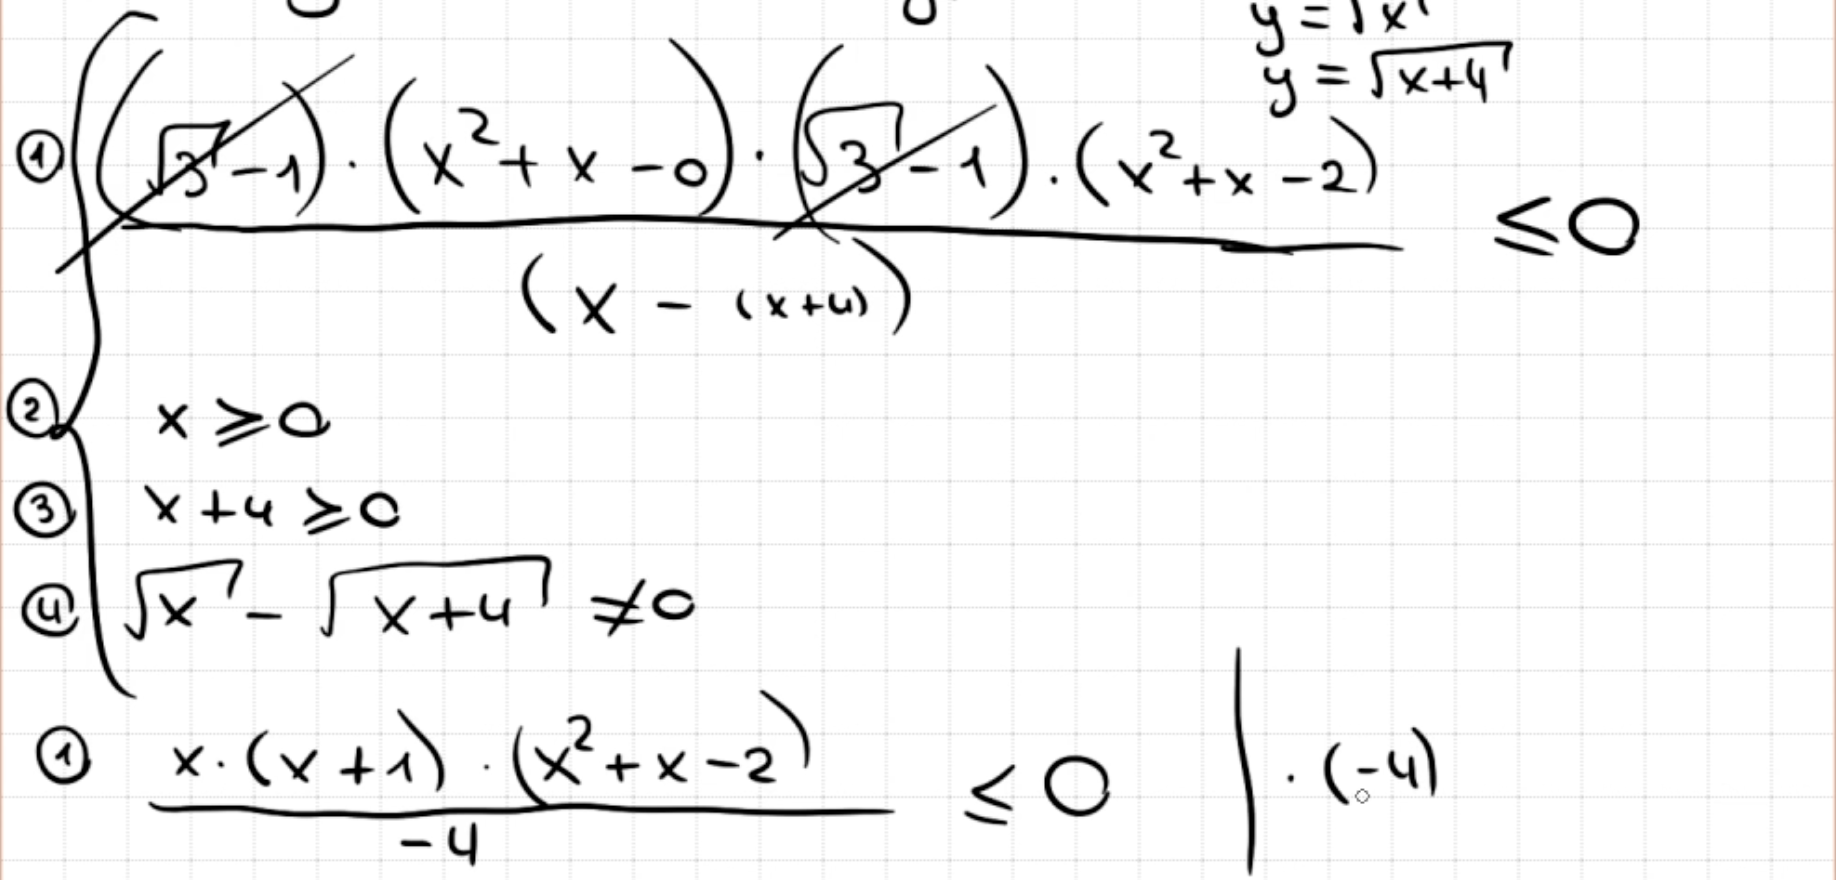 y = √x
y = √x+4
① (√3 - 1) · (x² + x - 0) · (√3 - 1) · (x² + x - 2)
≤ 0
(x - (x+4))
② x ≥ 0
③ x + 4 ≥ 0
④ √x - √x+4 ≠ 0
① x · (x + 1) · (x² + x - 2)
≤ 0 | · (-4)
-4